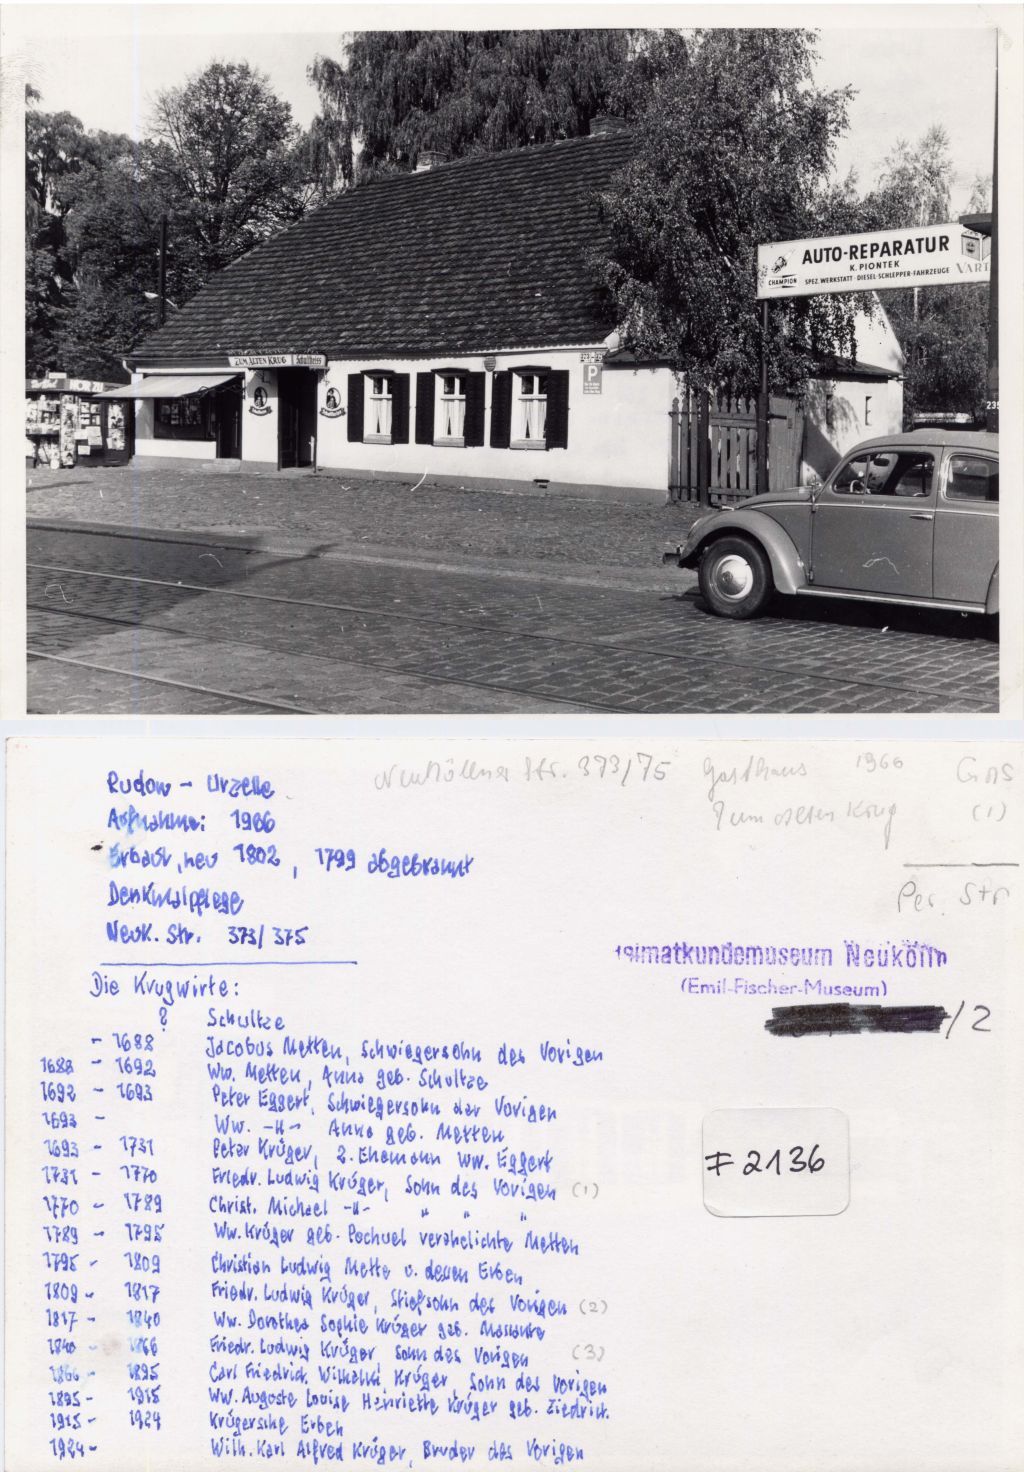 ZUM ALTEN KRUG
Schultheiss
P
AUTO-REPARATUR
K. PIONTEK
SPEZ. WERKSTATT · DIESEL-SCHLEPPER-FAHRZEUGE
CHAMPION
VART
Rudow - Urzelle
Neuköllner Str. 373/75 Gasthaus 1966
Zum alten Krug (1)
Aufnahme: 1966
Erbaut, neu 1802, 1799 abgebrannt
Denkmalpflege
Per. Str
Neuk. Str. 373/375
eimatkundemuseum Neukölln
(Emil-Fischer-Museum)
/2
Die Krugwirte:
? Schultze
- 1688 Jacobus Metten, Schwiegersohn des Vorigen
1688 - 1692 Ww. Metten, Anna geb. Schultze
1692 - 1693 Peter Eggert, Schwiegersohn der Vorigen
1693 - Ww. -"- Anna geb. Metten
1693 - 1731 Peter Krüger, 2. Ehemann Ww. Eggert
1731 - 1770 Friedr. Ludwig Krüger, Sohn des Vorigen (1)
1770 - 1789 Christ. Michael -"- " " "
1789 - 1795 Ww. Krüger geb. Pochuel verehelichte Metten
1795 - 1809 Christian Ludwig Mette u. dessen Erben
1809 - 1817 Friedr. Ludwig Krüger, Stiefsohn des Vorigen (2)
1817 - 1840 Ww. Dorothea Sophie Krüger geb.
1840 - 1866 Friedr. Ludwig Krüger, Sohn des Vorigen (3)
1866 - 1895 Carl Friedrich Wilhelm Krüger, Sohn des Vorigen
1895 - 1915 Ww. Auguste Louise Henriette Krüger geb. Ziedrich.
1915 - 1924 Krügersche Erben
1924 - Wilh. Karl Alfred Krüger, Bruder des Vorigen
F 2136